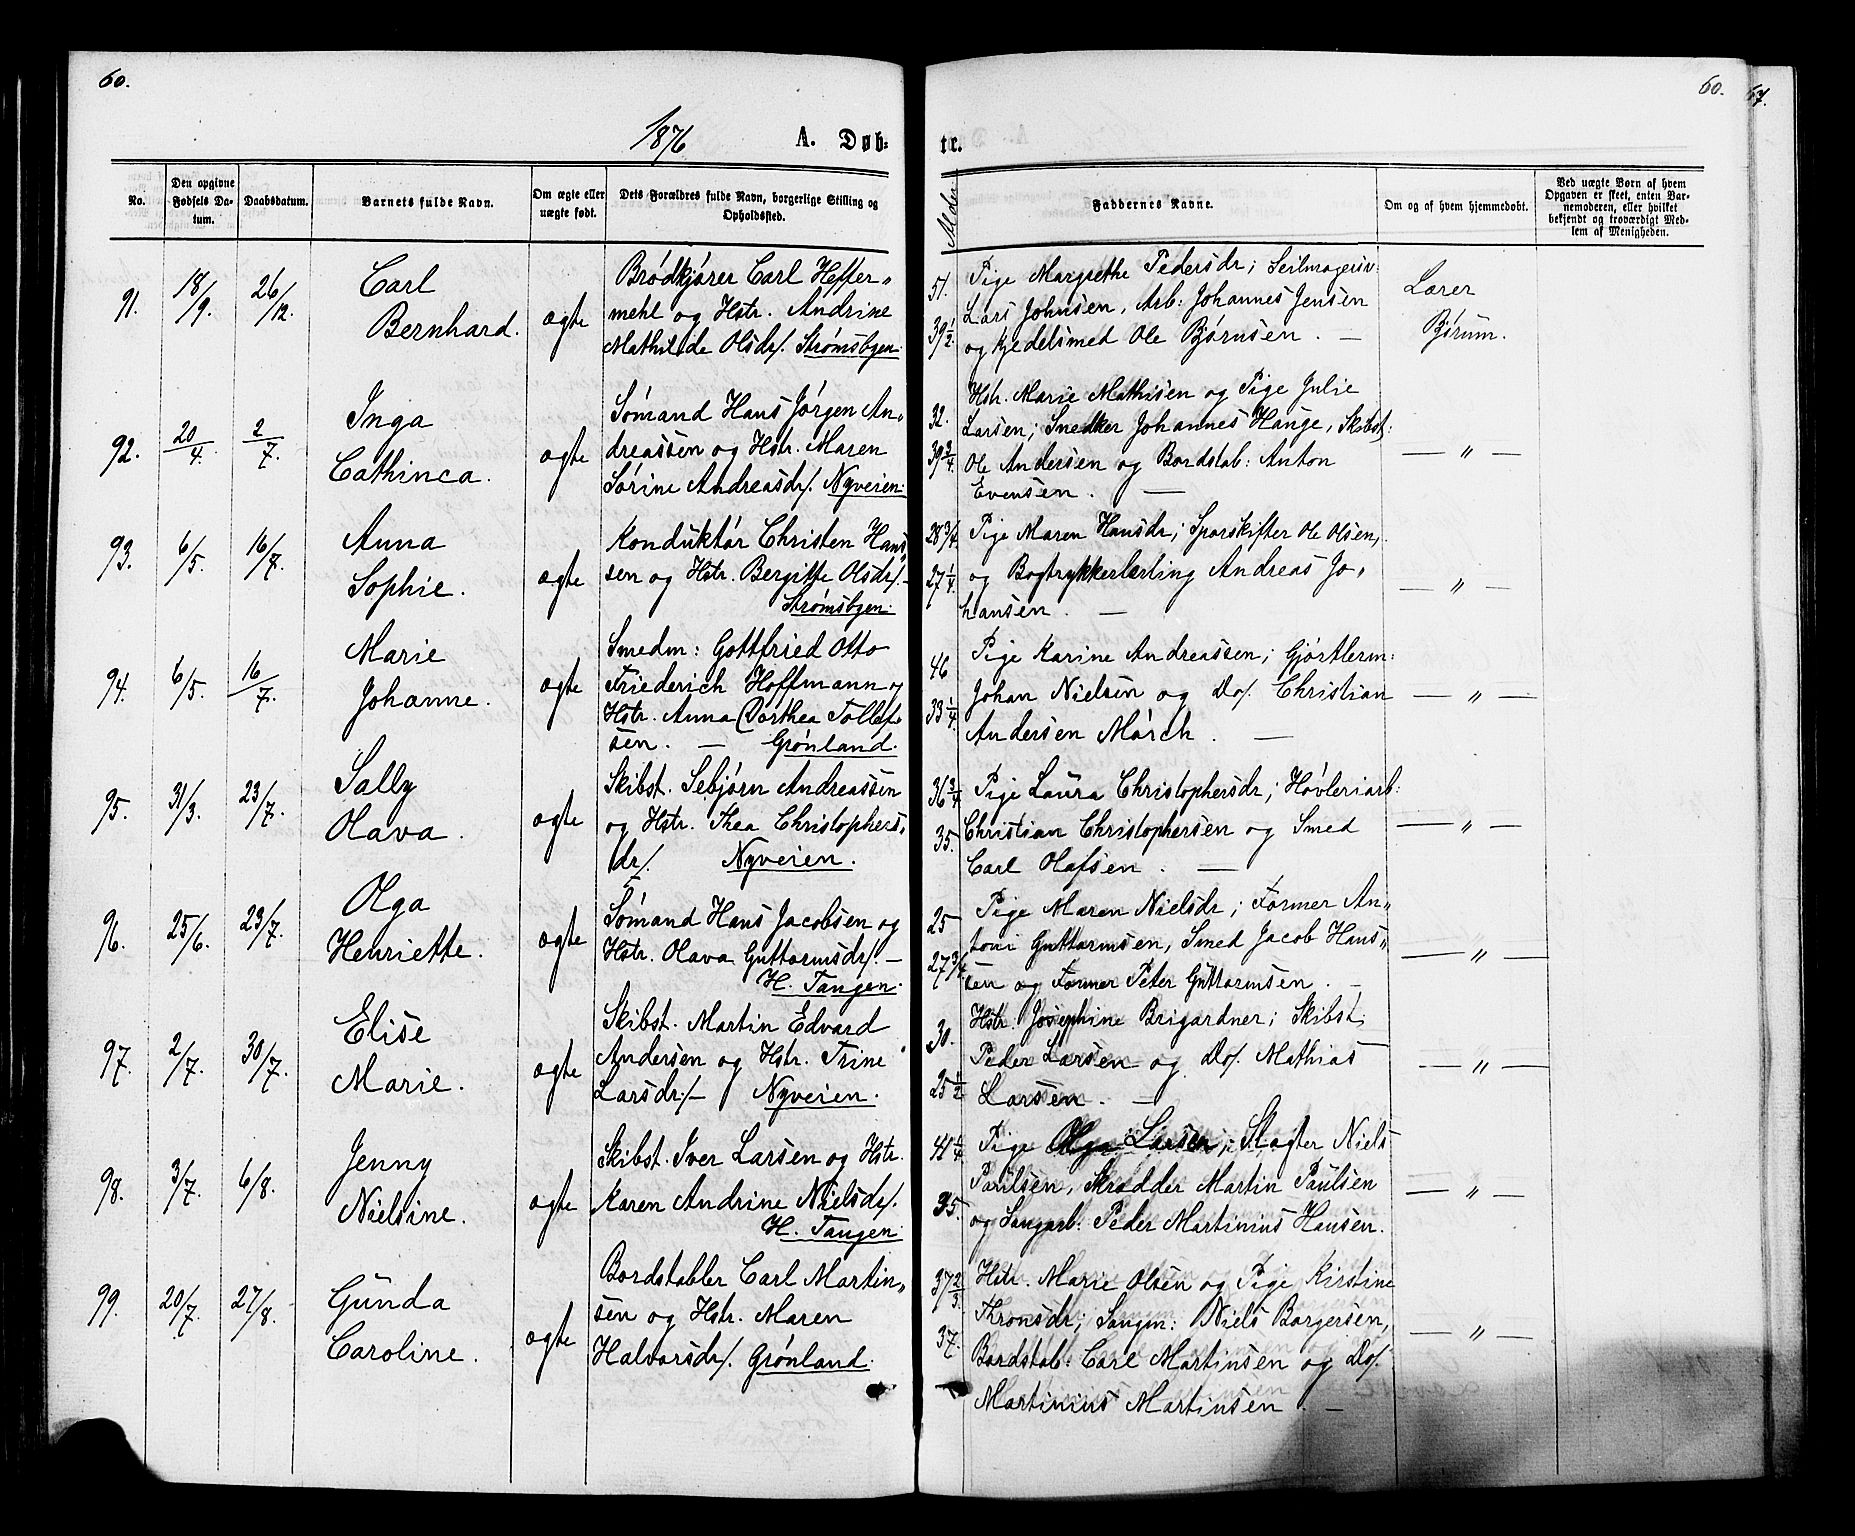 60.
60.
67.
1876
A. Døb-
te.
No.
Den opgivne Fødsels Da-tum.
Daabsdatum.
Barnets fulde Navn.
Om ægte eller uægte født.
Dets Forældres fulde Navn, borgerlige Stilling og Opholdssted.
Alder
Faddernes Navne.
Om og af hvem hjemmedøbt.
Ved uægte Børn af hvem Opgaven er skeet, enten Bar-nemoderen, eller hvilket bekjendt og troværdigt Med-lem af Menigheden.
91. 18/9. 26/12.
Carl
Bernhard.
ægte
Brødkjører Carl Heffer-
mehl og Hstr. Andrine
Mathilde Olsdr/. Strømsbgen.
51.
39 1/2.
Pige Margrethe Pedersdr; Seilmagersv:
Lars Johnsen, Arb: Johannes Jensen
og Kjedelsmed Ole Bjørnsen. —
Lærer
Bjørum.
92. 20/4. 2/7.
Inga
Cathinca.
ægte
Sømand Hans Jørgen An-
dreassen og Hstr. Maren
Sørine Andreasdr/. Nyveien.
32.
39 3/4.
Hstr. Marie Mathisen og Pige Julie
Larsen; Snedker Johannes Hauge, Skibst:
Ole Andersen og Bordstab: Anton
Evensen. —
— " —
93. 6/5. 16/7.
Anna
Sophie.
ægte
Konduktør Christen Han-
sen og Hstr. Bergitte Olsdr/. —
Strømsbgen.
28 3/4.
27 1/4.
Pige Maren Hansdr; Sporskifter Ole Olsen,
og Bogtrykkerlærling Andreas Jo-
hansen. —
— " —
94. 6/5. 16/7.
Marie
Johanne.
ægte
Smedm: Gottfried Otto
Friederich Hoffmann og
Hstr. Anna Dorthea Tollef-
sen. — Grønland.
46
33 1/4.
Pige Karine Andreassen; Gjørtlerm:
Johan Nielsen og Do/. Christian
Andersen Mørch. —
— " —
95. 31/3. 23/7.
Sally
Olava.
ægte
Skibst. Sebjørn Andreassen
og Hstr. Thea Christophers-
dr/. Nyveien.
36 3/4
35.
Pige Laura Christophersdr; Høvleriarb:
Christian Christophersen og Smed
Carl Olafsen. —
— " —
96. 25/6. 23/7.
Olga
Henriette.
ægte
Sømand Hans Jacobsen og
Hstr. Olava Guttormsdr/. —
H. Tangen.
25
27 3/4.
Pige Maren Nielsdr; Former An-
toni Guttormsen, Smed Jacob Hans-
sen og Former Peter Guttormsen. —
— " —
97. 2/7. 30/7.
Elise
Marie.
ægte
Skibst. Martin Edvard
Andersen og Hstr. Trine
Larsdr/— Nyveien.
30.
25 1/2
Hstr. Josephine Brigardner; Skibst.
Peder Larsen og Do/. Mathias
Larssen. —
— " —
98. 3/7. 6/8.
Jenny
Nielsine.
ægte
Skibst. Iver Larsen og Hstr.
Karen Andrine Nielsdr/.
H. Tangen.
41 1/4
35.
Pige Olga Larsen; Slagter Niels
Paulsen, Skrædder Martin Paulsen
og Saugarb: Peder Martinius Hansen.
— " —
99. 20/7. 27/8.
Gunda
Caroline.
ægte
Bordstabler Carl Martin-
sen og Hstr. Maren
Halvorsdr/. Grønland.
37 2/3.
37.
Hstr. Marie Olsen og Pige Kirstine
Thronsdr; Saugm: Niels Borgersen,
Bordstab: Carl Martinsen og Do/.
Martinius Martinsen. —
— " —